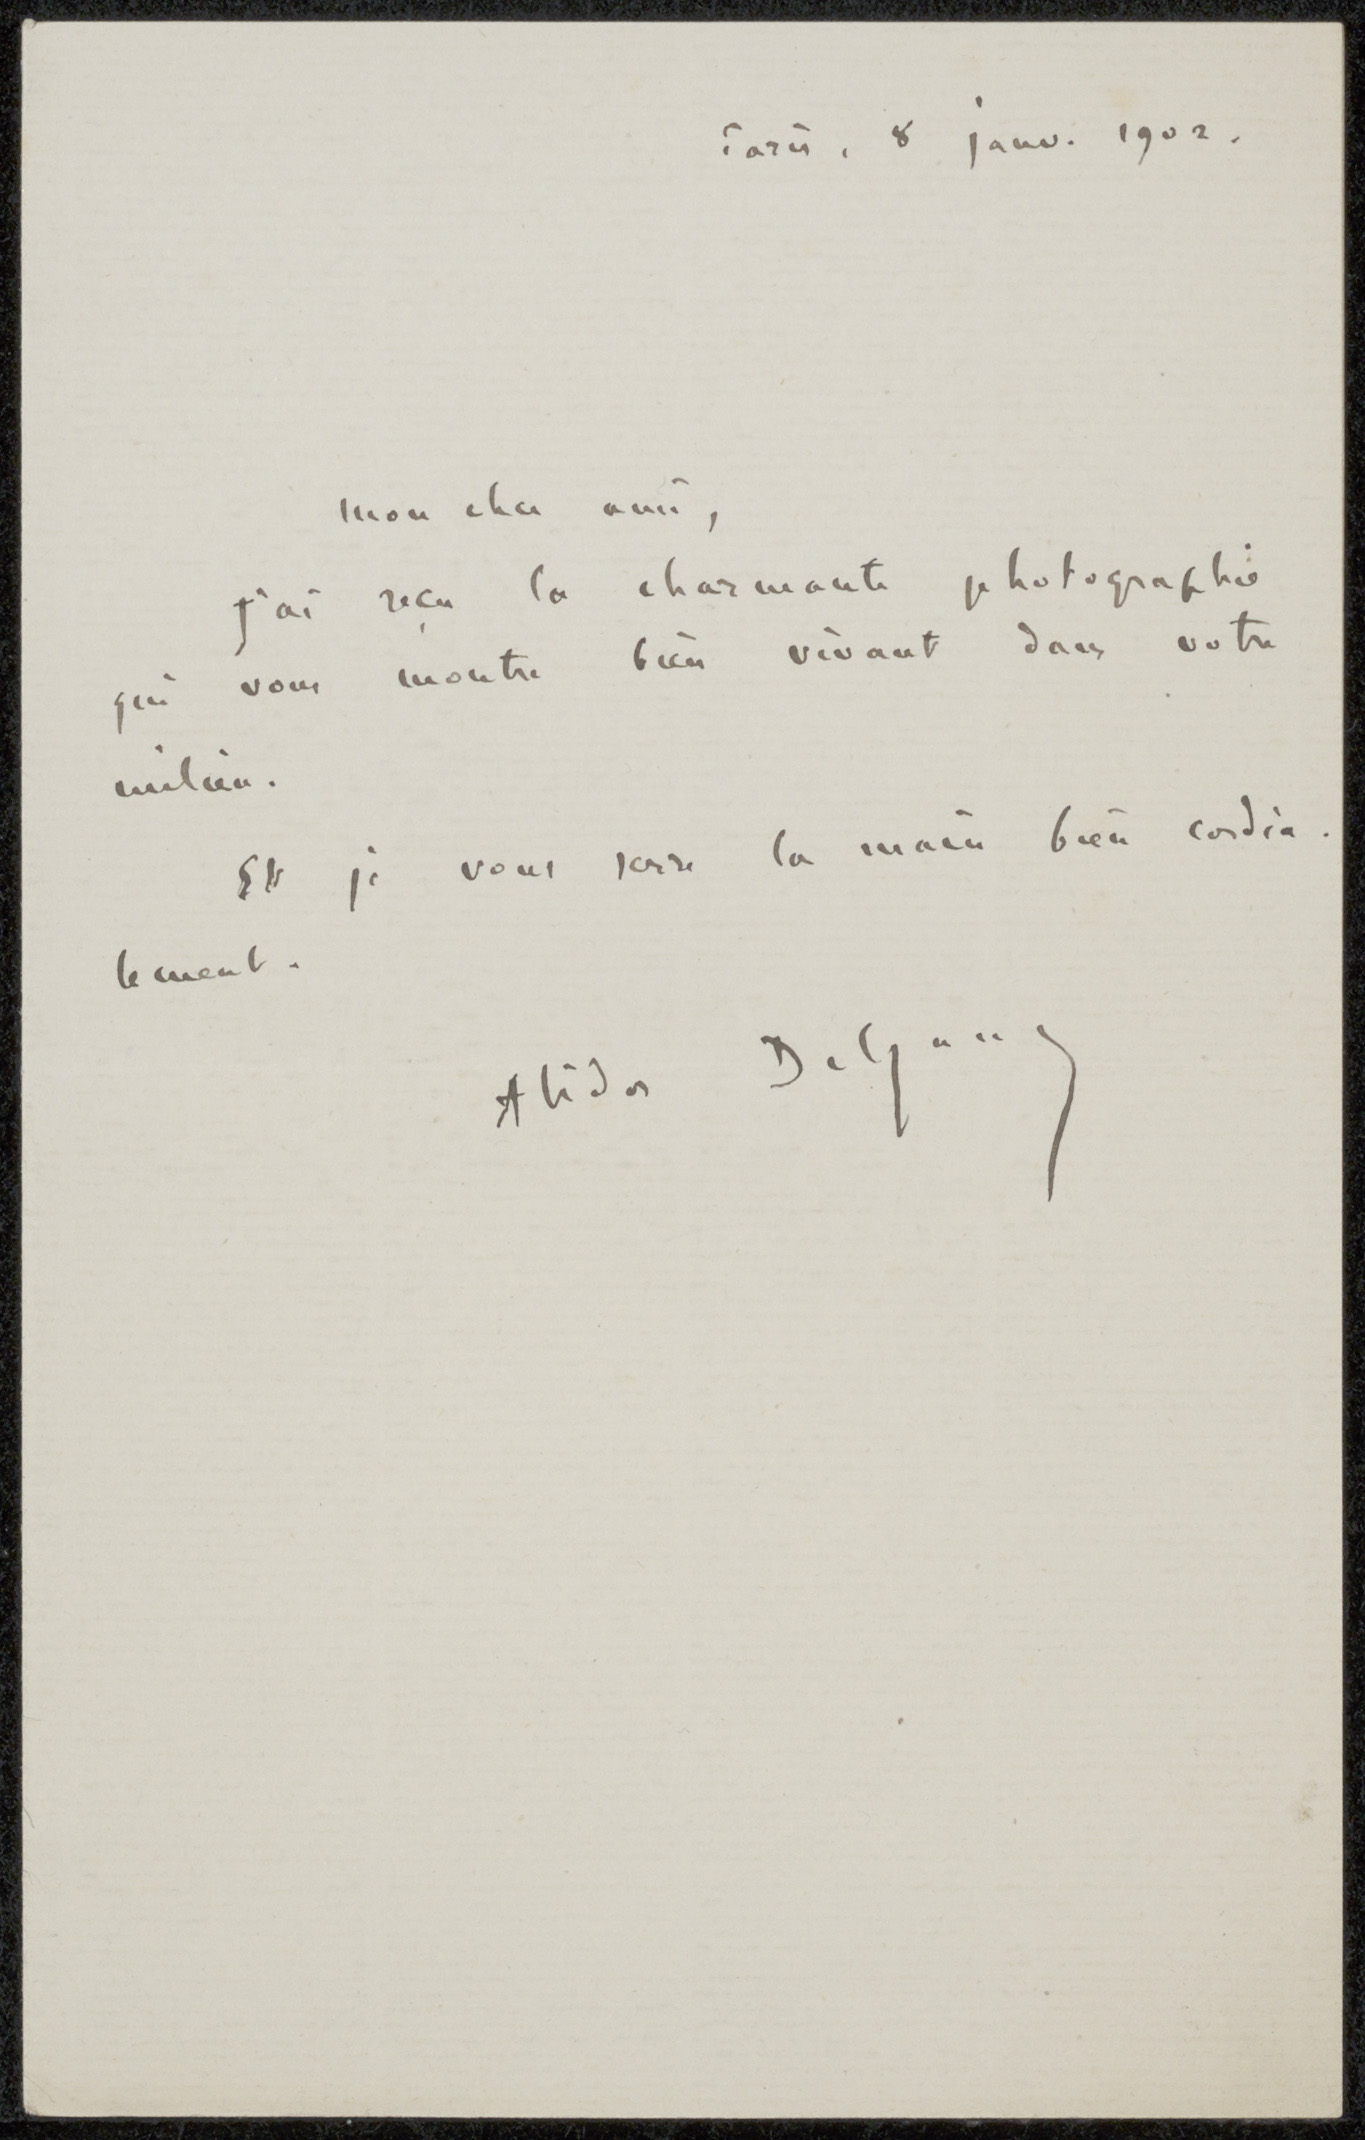 Paris, 8 janv. 1902.
Mon cher ami,
J'ai reçu la charmante photographie
qui vous montre bien vivant dans votre
milieu.
Et je vous serre la main bien cordia-
lement.
Alidor Delzant